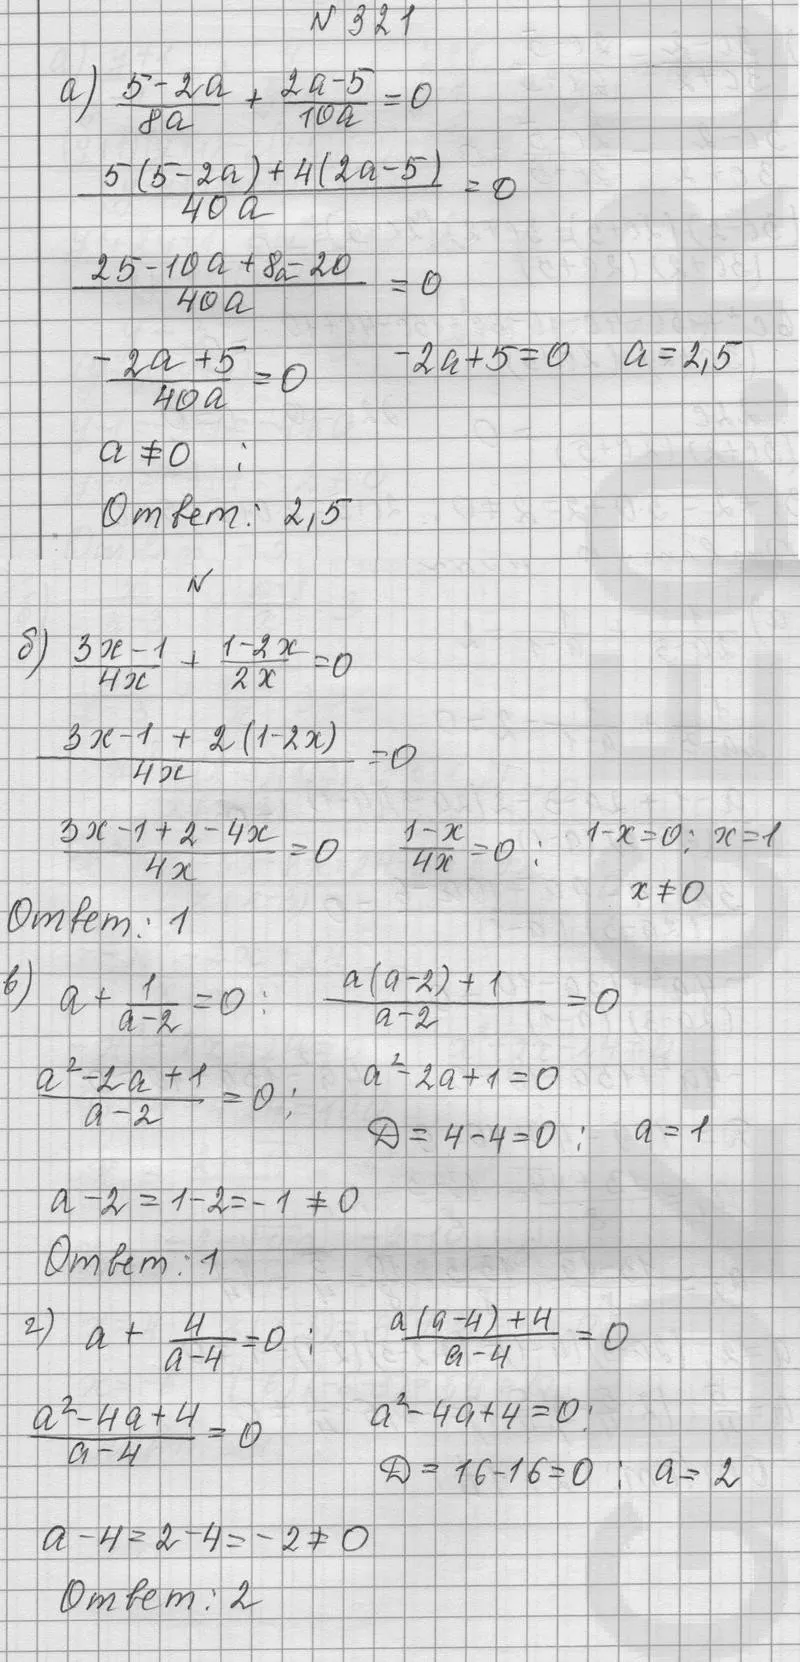 N 321
а) (5-2a)/(8a) + (2a-5)/(10a) = 0
(5(5-2a)+4(2a-5))/(40a) = 0
(25-10a+8a-20)/(40a) = 0
(-2a+5)/(40a) = 0 -2a+5=0 a=2,5
a≠0 ;
Ответ: 2,5
N
б) (3x-1)/(4x) + (1-2x)/(2x) = 0
(3x-1+2(1-2x))/(4x) = 0
(3x-1+2-4x)/(4x) = 0 (1-x)/(4x) = 0; 1-x=0; x=1
x≠0
Ответ: 1
в) a + 1/(a-2) = 0; (a(a-2)+1)/(a-2) = 0
(a²-2a+1)/(a-2) = 0; a²-2a+1=0
D=4-4=0; a=1
a-2=1-2=-1≠0
Ответ: 1
г) a + 4/(a-4) = 0; (a(a-4)+4)/(a-4) = 0
(a²-4a+4)/(a-4) = 0 a²-4a+4=0;
D=16-16=0; a=2
a-4=2-4=-2≠0
Ответ: 2